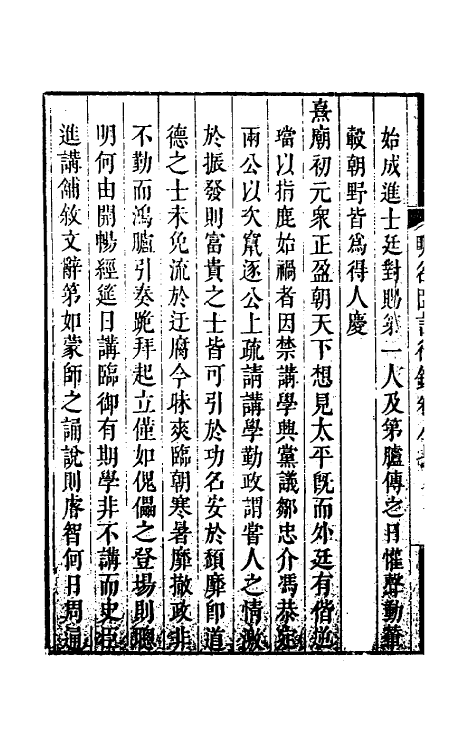 始成進士廷對賜第一人及第臚傳之日懽聲動輦
轂朝野皆爲得人慶
熹廟初元衆正盈朝天下想見太平旣而外廷有借逆
璫以指鹿始禍者因禁講學興黨議鄒忠介馮恭定
兩公以次竄逐公上疏請講學勤政謂嘗人之情激
於振發則富貴之士皆可引於功名安於頹靡即道
德之士未免流於迂腐今昧爽臨朝寒暑靡撤政非
不勤而鴻臚引奏跪拜起立僅如傀儡之登場則聰
明何由開暢經筵日講臨御有期學非不講而史臣
進講鋪敘文辭第如蒙師之誦說則睿智何日周通